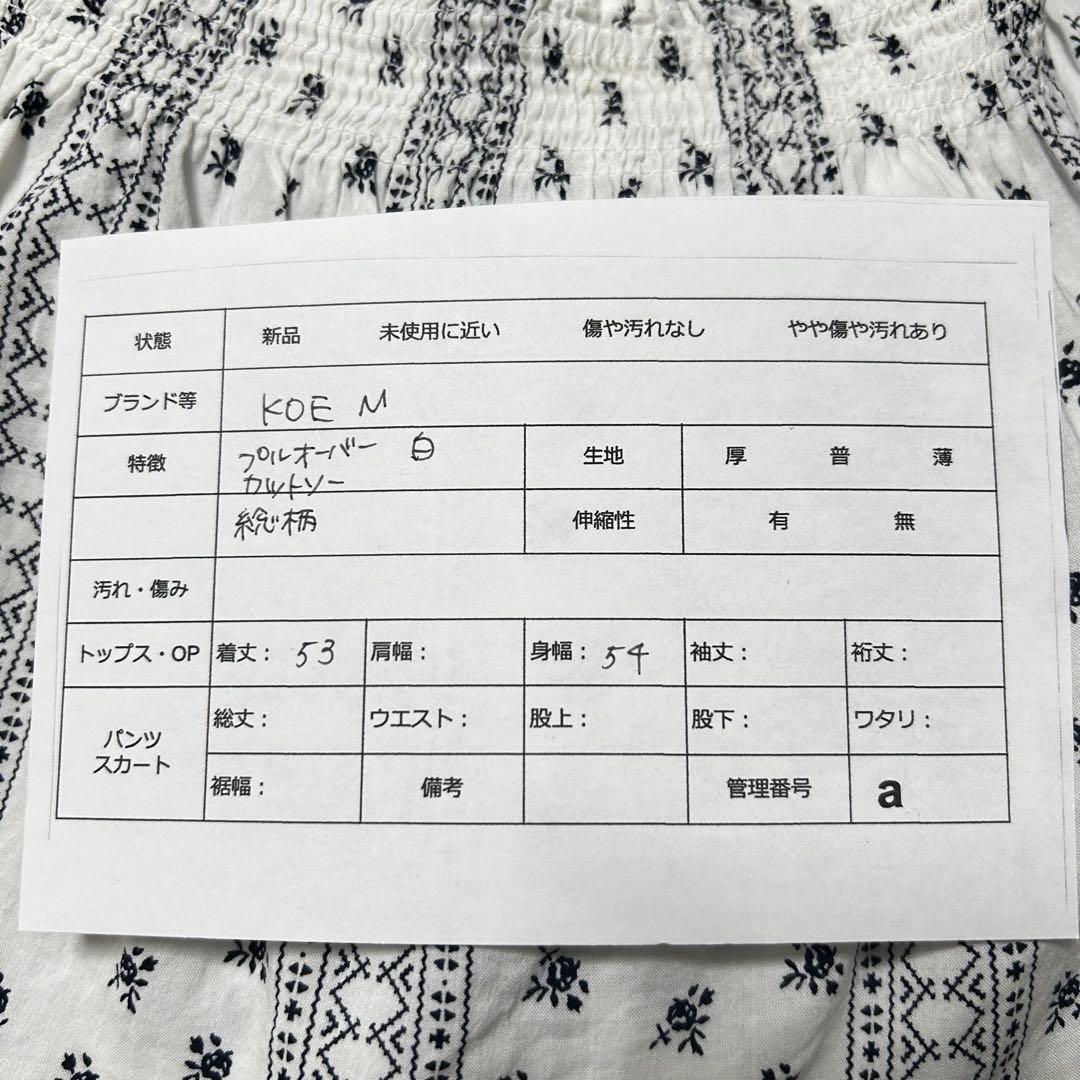 状態 新品 未使用に近い 傷や汚れなし やや傷や汚れあり
ブランド等 KOE M
特徴 プルオーバー 白 生地 厚 普 薄
カットソー
総柄 伸縮性 有 無
汚れ・傷み
トップス・OP 着丈： 53 肩幅： 身幅： 54 袖丈： 裄丈：
パンツ
スカート
総丈： ウエスト： 股上： 股下： ワタリ：
裾幅： 備考 管理番号 a